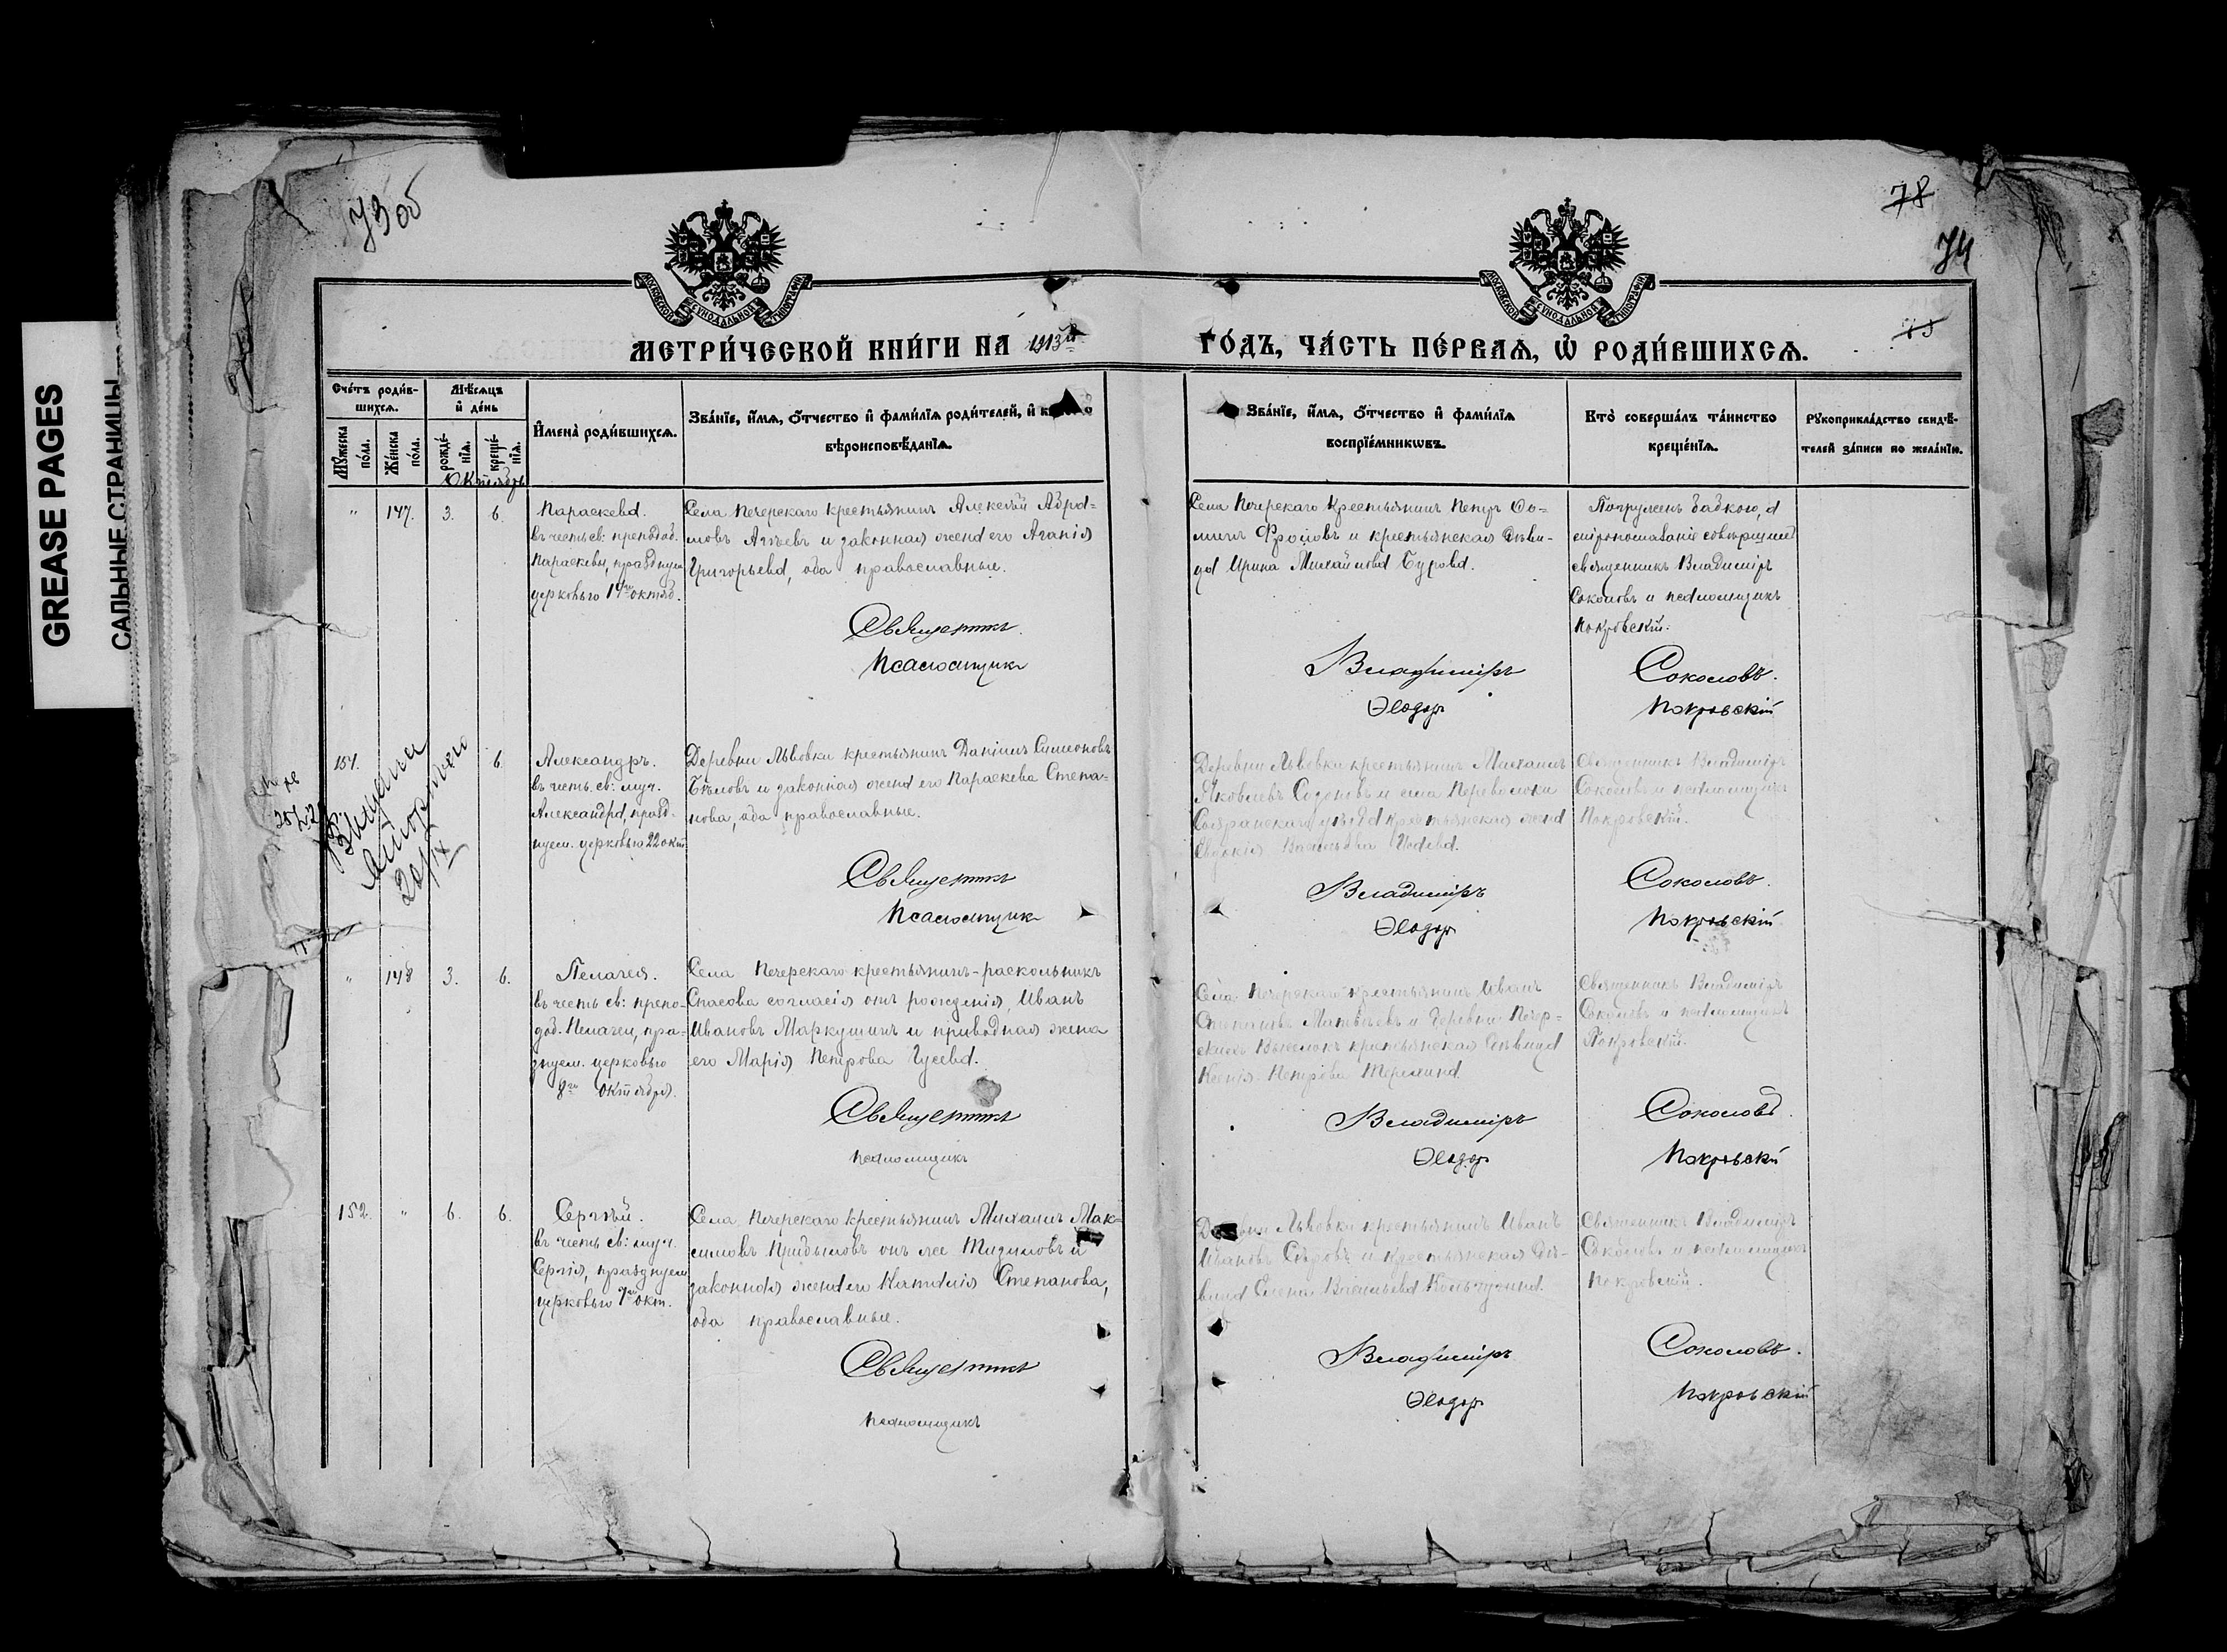 GREASE PAGES
САЛЬНЫЕ СТРАНИЦЫ
73об
78
74
МОСКОВСКОЙ СѴНОДАЛЬНОЙ ТИПОГРАФІИ
МОСКОВСКОЙ СѴНОДАЛЬНОЙ ТИПОГРАФІИ
МЕТРИ́ЧЕСКОЙ КНИ́ГИ НА 1913й
ГО́ДЪ, ЧА́СТЬ ПЕ́РВАЯ, Ѡ РОДИ́ВШИХСЯ.
Сче́тъ роди́в-
шихся.
Мꙋ́жеска по́ла.
Же́нска по́ла.
Мѣ́сяцъ
и҆ де́нь
рожде́-
нїя.
креще́-
нїя.
Октябрь
И҆мена̀ роди́вшихся.
Зва́нїе, и҆́мя, ѻ҆́тчество и҆ фами́лїя роди́телей, и҆
вѣроисповѣ́данїя.
Зва́нїе, и҆́мя, ѻ҆́тчество и҆ фами́лїя
воспрїе́мникѡвъ.
Кто̀ соверша́лъ та́инство
креще́нїя.
Рꙋкоприкла́дство свидѣ́-
телей за́писи по жела́нїю.
" 147. 3. 6.
Параскева.
въ честь св: преподоб.
Параскевы, празднуем
церковью 14го октяб.
Села Печерскаго крестьянинъ Алексѣй Абра-
мовъ Агѣевъ и законная жена его Агапія
Григорьева, оба православные.
Священникъ
Псаломщикъ
Села Печерскаго Крестьянинъ Петръ Ѳо-
минъ Фроловъ и крестьянская дѣви-
ца Ирина Михайлова Бурова.
Владиміръ
Ѳеодоръ
Погруженъ бабкою, а
миропомазаніе совершилъ
священникъ Владиміръ
Соколовъ и псаломщикъ
Покровскій.
Соколовъ.
Покровскій
151. 6
Выдана
20/IX
Александръ.
въ честь св: муч.
Александра, празд-
нуем. церковью 22 окт.
Деревни Львовки крестьянинъ Даніилъ Симеоновъ
Бѣловъ и законная жена его Параскева Степа-
нова, оба православные.
Священникъ
Псаломщикъ
Деревни Львовки крестьянинъ Михаилъ
Яковлевъ и села Переволоки
Сызранскаго уѣзда крестьянская жена
Евдокія Васильева
Владиміръ
Ѳеодоръ
Священникъ Владиміръ
Соколовъ и псаломщикъ
Покровскій.
Соколовъ.
Покровскій
" 148 3. 6.
Пелагея.
въ честь св: препо-
доб. Пелагеи, пра-
знуем. церковью
8го октября.
Села Печерскаго крестьянинъ-раскольникъ
Спасова согласія отъ рожденія, Иванъ
Ивановъ Маркушинъ и приводная жена
его Марія Петрова Гусева.
Священникъ
Псаломщикъ
Села Печерскаго крестьянинъ Иванъ
Степановъ Матвѣевъ и деревни Печер-
скихъ Выселокъ крестьянская дѣвица
Ксенія Петрова
Владиміръ
Ѳеодоръ
Священникъ Владиміръ
Соколовъ и псаломщикъ
Покровскій.
Соколовъ.
Покровскій
152. " 6. 6.
Сергѣй.
въ честь св: муч.
Сергія, празднуем
церковью 7го окт.
Села Печерскаго крестьянинъ Михаилъ Мак-
симовъ Придыловъ онъ же и
законная жена его Степанова,
оба православные.
Священникъ
Псаломщикъ
Деревни Львовки крестьянинъ Иванъ
Ивановъ и крестьянская дѣ-
вица Елена Васильева
Владиміръ
Ѳеодоръ
Священникъ Владиміръ
Соколовъ и псаломщикъ
Покровскій.
Соколовъ.
Покровскій